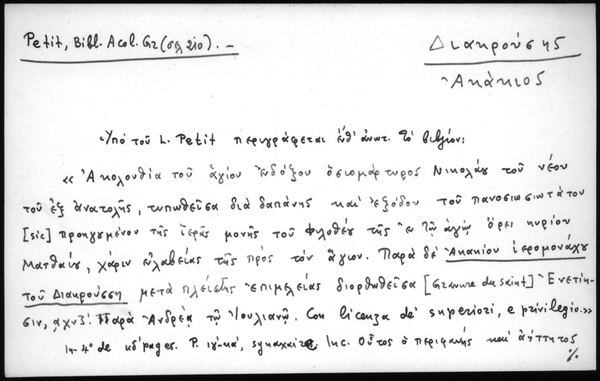 Petit, Bibl. Acol. Gr (σελ 210). –
Διακρούσης
Ἀκάκιος
Ὑπό τοῦ L. Petit περιγράφεται ἐνθ' ἀνωτ. τό βιβλίον:
« Ἀκολουθία τοῦ ἁγίου ἐνδόξου ὁσιομάρτυρος Νικολάου τοῦ νέου
τοῦ ἐξ ἀνατολῆς, τυπωθεῖσα διά δαπάνης καί ἐξόδου τοῦ πανοσιωσιωτάτου
[sic] προηγουμένου τῆς ἱερᾶς μονῆς τοῦ Φιλοθέου τῆς ἐν τῷ ἁγίῳ ὄρει κυρίου
Ματθαίου, χάριν εὐλαβείας τῆς πρός τόν ἅγιον. Παρά δέ Ἀκακίου ἱερομονάχου
τοῦ Διακρούση μετά πλείστης ἐπιμελείας διορθωθεῖσα [Gravure du Saint] Ἐνετίη-
σιν, Παρά Ἀνδρέα τῷ Ἰουλιανῷ. Con licenza de' superiori, e privilegio.»
In-4° de κδ' pages. P. ιγ'-κα', synaxaire Inc. Οὗτος ὁ περιφανής καί ἀήττητος
%